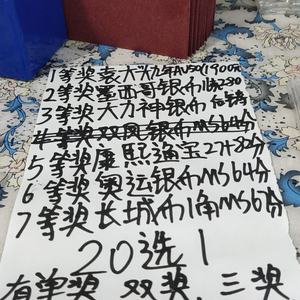 1等奖袁大头九年AU50 1900元
2等奖墨西哥银币
3等奖大力神银币
4等奖双凤银币MS64分
5等奖康熙通宝27+82分
6等奖奥运银币MS64分
7等奖长城币1角MS67分
20选1
有单奖 双奖 三奖